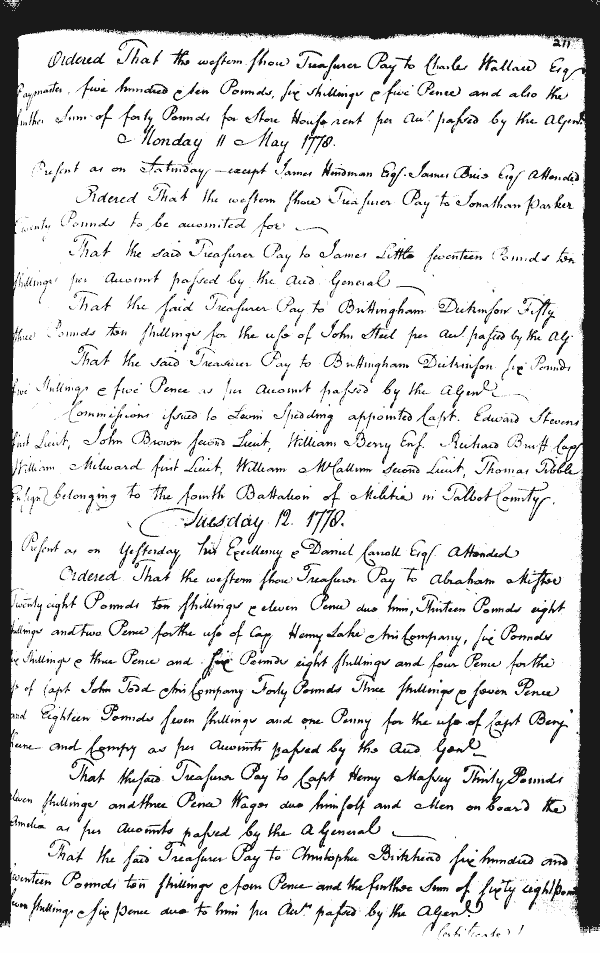 211
Ordered That the western shore Treasurer Pay to Charles Wallace Esqr
Paymaster, five hundred & ten Pounds, six shillings & five Pence and also the
further Sum of forty Pounds for Store House rent per Acct. passed by the AGenl.
Monday 11 May 1778.
Present as on Saturday except James Hindman Esqr. James Brice Esqr Attended
Ordered That the western shore Treasurer Pay to Jonathan Parker
Twenty Pounds to be accounted for
That the said Treasurer Pay to James Little seventeen Pounds ten
shillings per Account passed by the Aud. General
That the said Treasurer Pay to Brittingham Dickinson Fifty
three Pounds ten shillings for the use of John Steel per Acct. passed by the AG
That the said Treasurer Pay to Brittingham Dickinson six Pounds
five Shillings & five Pence as per Account passed by the AGenl.
Commissions issued to Levin Spedding appointed Capt. Edward Stevens
first Lieut, John Brown second Lieut, William Berry Ens. Richard Bruff Capt
William Milward first Lieut, William McCallum second Lieut, Thomas Tibble
Ensign belonging to the fourth Battalion of Militia in Talbot County.
Tuesday 12. 1778.
Present as on Yesterday his Excellency & Daniel Carroll Esqr. Attended
Ordered That the western shore Treasurer Pay to Abraham Mister
Twenty eight Pounds ten shillings & eleven Pence due him, Thirteen Pounds eight
shillings and two Pence for the use of Cap Henry Lake & his Company, six Pounds
six Shillings & three Pence and six Pounds eight shillings and four Pence for the
use of Capt John Todd & his Company Forty Pounds Three shillings & seven Pence
and Eighteen Pounds seven shillings and one Penny for the use of Capt Benj
Keene and Compy as per Accounts passed by the Aud Genl.
That the said Treasurer Pay to Capt Henry Massey Thirty Pounds
eleven shillings and three Pence Wages due himself and Men on board the
Amelia as per Accounts passed by the AGeneral
That the said Treasurer Pay to Christopher Birkhead six hundred and
seventeen Pounds ten shillings & four Pence and the further Sum of sixty eight pounds
seven shillings & six pence due to him per Acct. passed by the AGenl.
Certificate